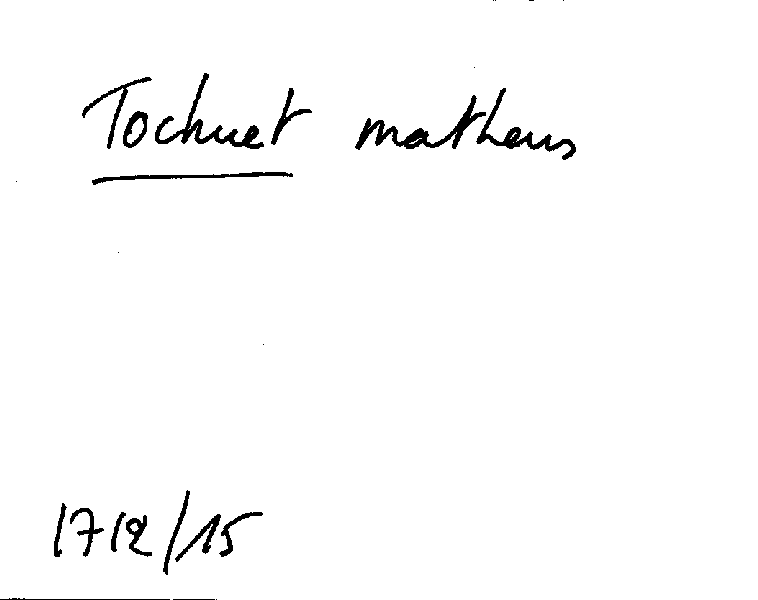 Tochuet matheus
1712/15